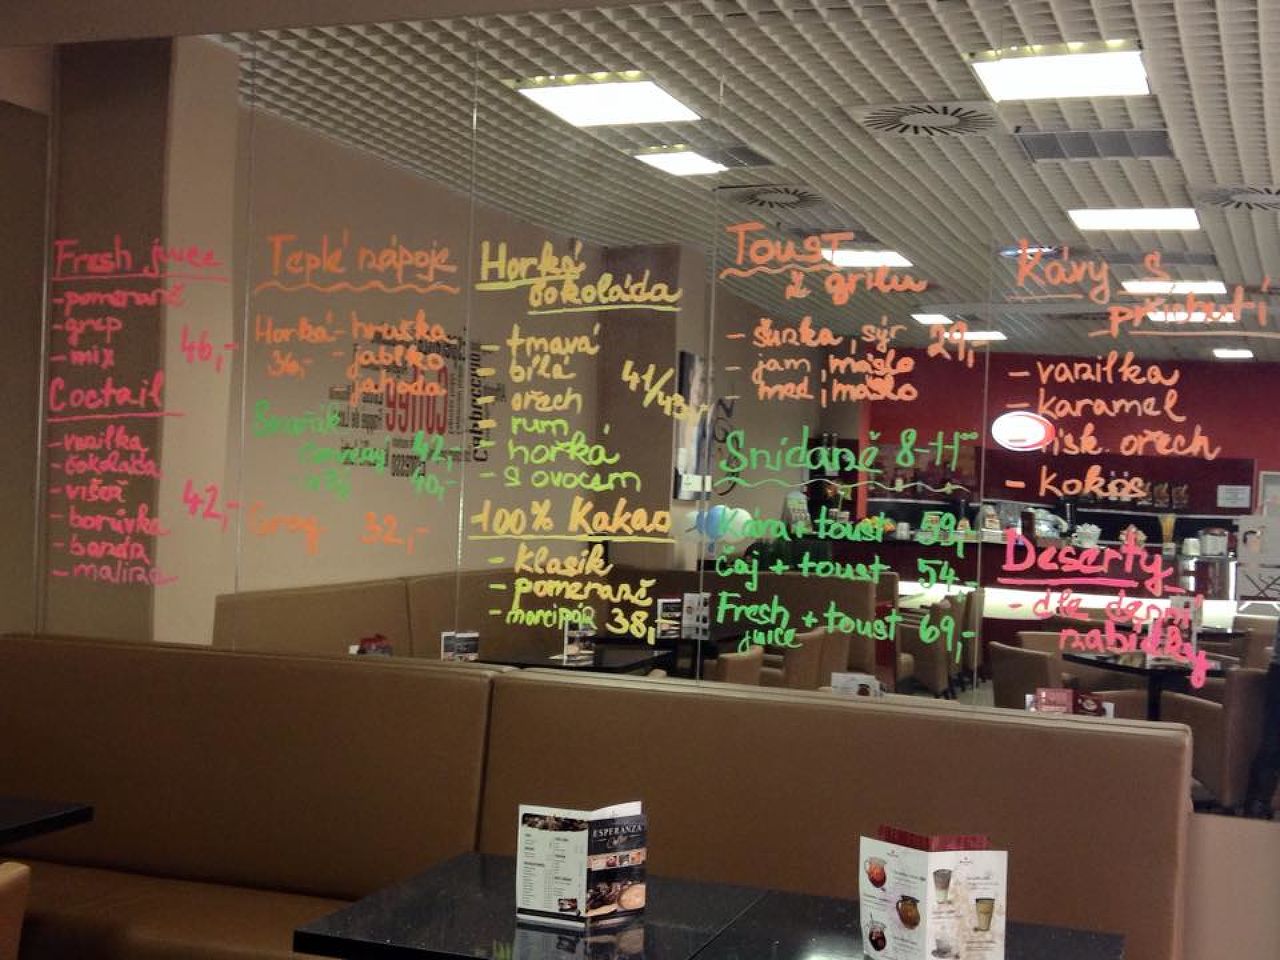 Fresh juice
- pomeranč
- grep
- mix
46,-
Coctail
- vanilka
- čokoláda
- višeň
- borůvka
- banán
- malina
42,-
Teplé nápoje
Horká - hruška
36,- - jablko
jahoda
Svařák
červený 42,-
bílý 40,-
Grog 32,-
Horká
čokoláda
- tmavá
- bílá
- ořech
- rum
- hořká
- s ovocem
41/43,-
100% Kakao
- klasik
- pomeranč
- marcipán 38,-
Toust
z grilu
- šunka, sýr 29,-
- jam, máslo
- med, máslo
Snídaně 8-11⁰⁰
Káva + toust 59,-
Čaj + toust 54,-
Fresh + toust 69,-
juice
Kávy s
příchutí
- vanilka
- karamel
- lísk. ořech
- kokos
Deserty
- dle denní
nabídky
ESPERANZA
Coffee